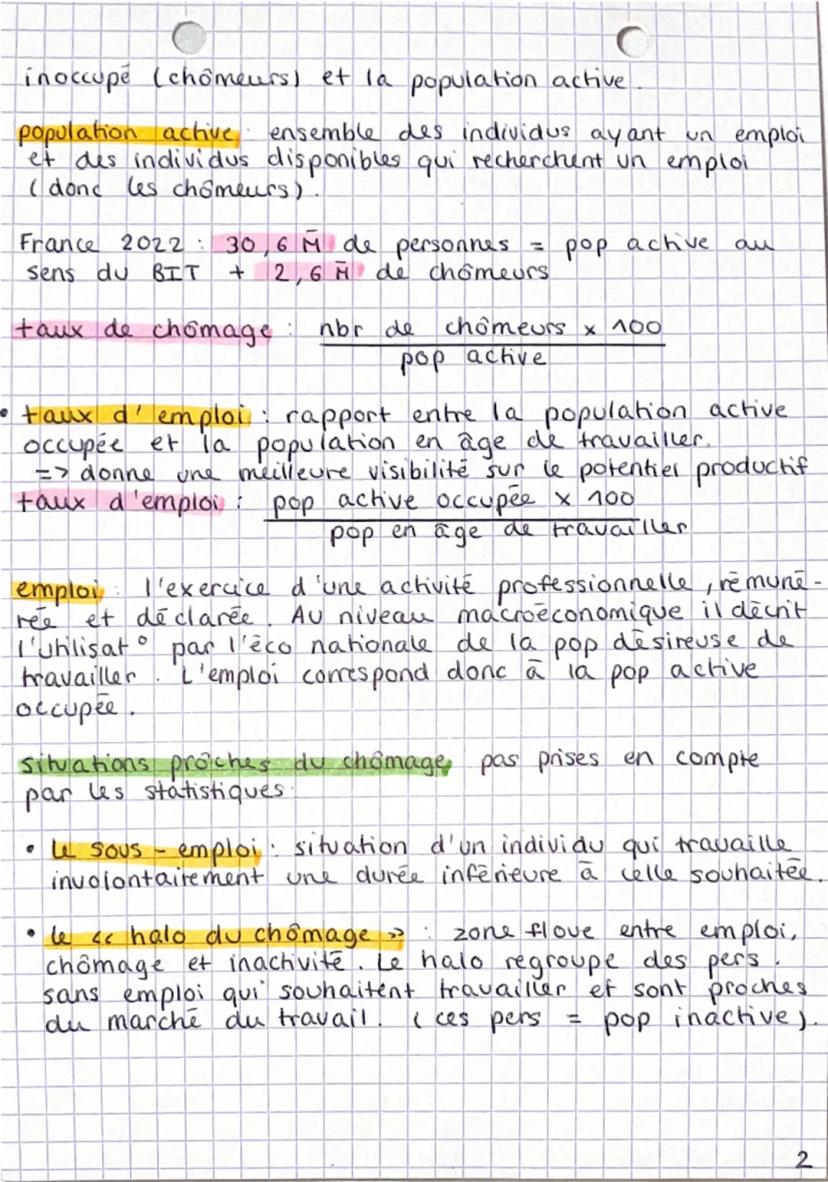 inoccupé (chômeurs) et la population active.
population active : ensemble des individus ayant un emploi
et des individus disponibles qui recherchent un emploi
(donc les chômeurs).
France 2022 : 30,6 M de personnes = pop active au
sens du BIT + 2,6 M de chômeurs
taux de chômage : nbr de chômeurs x 100
pop active
• taux d'emploi : rapport entre la population active
occupée et la population en âge de travailler.
=> donne une meilleure visibilité sur le potentiel productif
taux d'emploi : pop active occupée x 100
pop en âge de travailler
emploi : l'exercice d'une activité professionnelle, rémuné-
rée et déclarée. Au niveau macroéconomique il décrit
l'utilisat° par l'éco nationale de la pop désireuse de
travailler. L'emploi correspond donc à la pop active
occupée.
situations proches du chômage, pas prises en compte
par les statistiques.
• Le sous-emploi : situation d'un individu qui travaille
involontairement une durée inférieure à celle souhaitée.
• le << halo du chômage >> : zone floue entre emploi,
chômage et inactivité. Le halo regroupe des pers.
sans emploi qui souhaitent travailler et sont proches
du marché du travail. (ces pers = pop inactive).
2